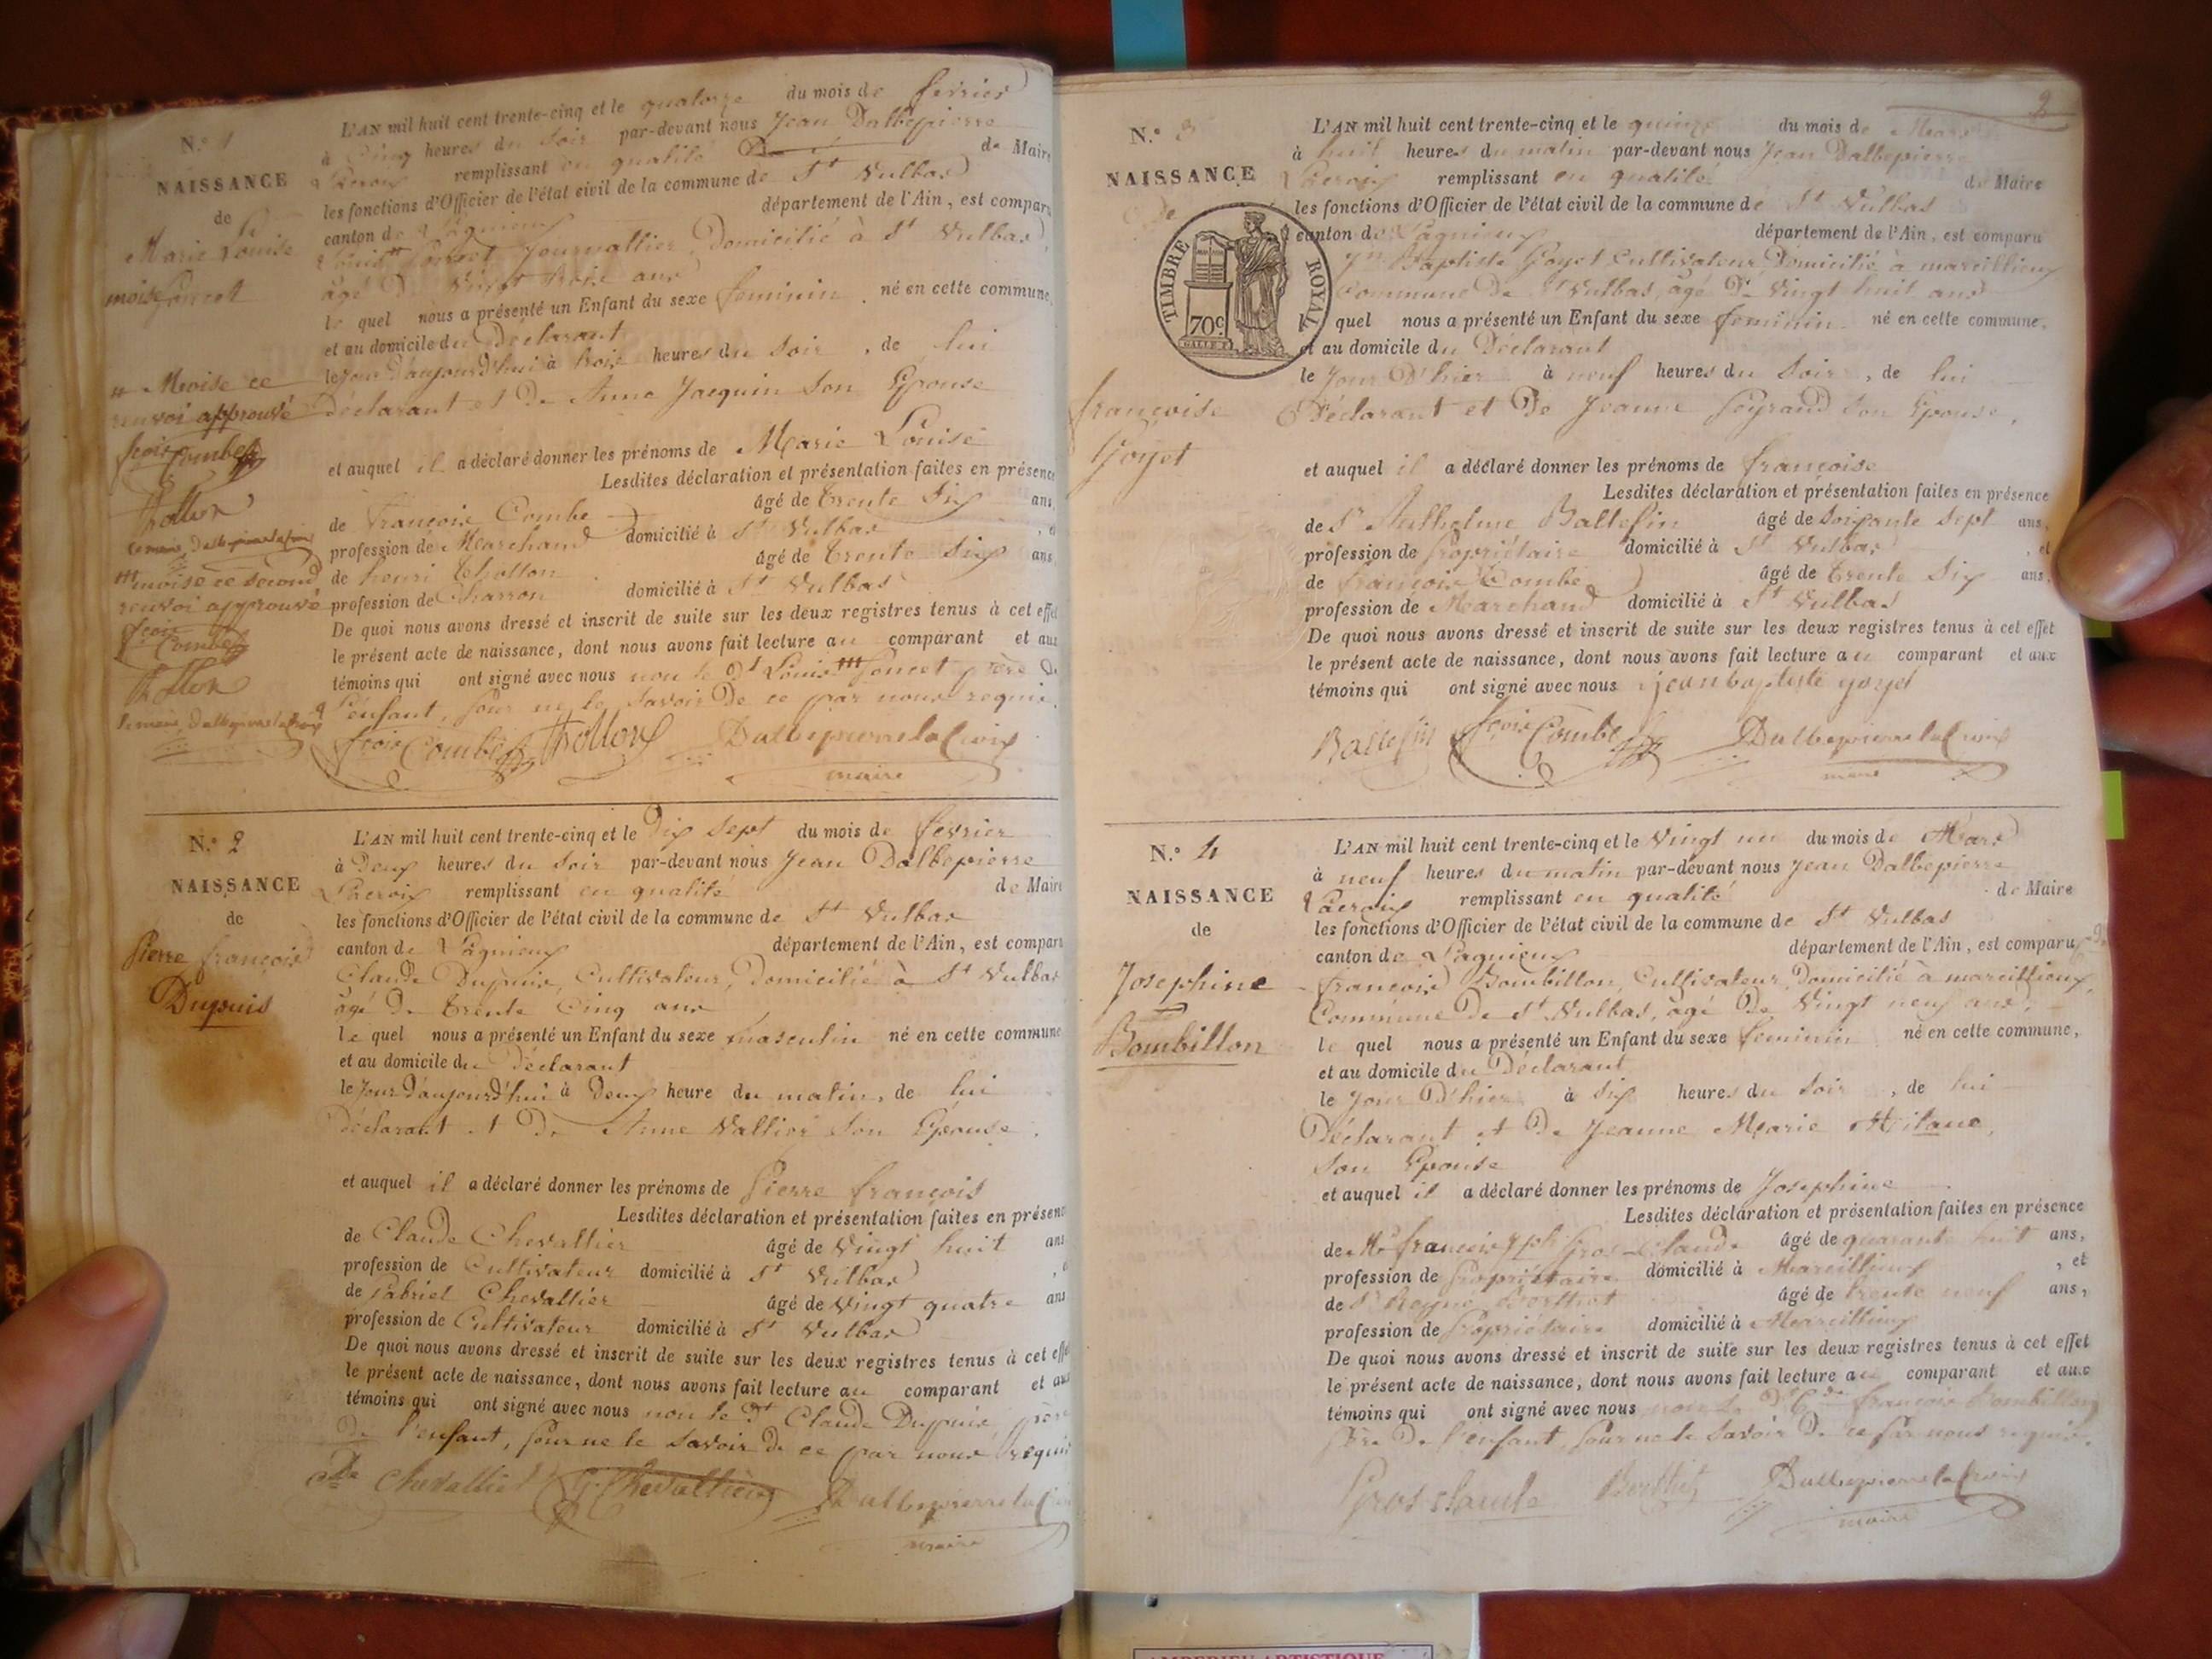 N.° 1
NAISSANCE
de
Marie Louise
moise poncet
# Moise ce
renvoi approuvé
fçois Combe
thollon
le maire Dalbepierrelacroix
### moise ce second
renvoi approuvé
fçois Combe
thollon
le maire Dalbepierrelacroix
L'AN mil huit cent trente-cinq et le quatorze du mois de fevrier
à Cinq heures du Soir par-devant nous Jean Dalbepierre
Lacroix remplissant en qualité de Maire
les fonctions d'Officier de l'état civil de la commune de St Vulbas
canton de Lagnieux département de l'Ain, est comparu
Louis # poncet Journallier, Domicilié à St Vulbas,
âgé De Vingt trois ans
le quel nous a présenté un Enfant du sexe feminin né en cette commune,
et au domicile du Déclarant
le Jour d'aujourd'hui à trois heures du Soir, de lui
déclarant et De Anne Jacquin Son Epouse
et auquel il a déclaré donner les prénoms de Marie Louise
Lesdites déclaration et présentation faites en présence
de François Combe âgé de trente Six ans,
profession de Marchand domicilié à St Vulbas, et
de henri thollon âgé de trente Six ans
profession de Charron domicilié à St Vulbas
De quoi nous avons dressé et inscrit de suite sur les deux registres tenus à cet effet
le présent acte de naissance, dont nous avons fait lecture au comparant et aux
témoins qui ont signé avec nous non le dt Louis ### poncet père De
l'enfant, pour ne le Savoir De ce par nous requis.
fçois Combe thollon Dalbepierrelacroix
maire
N.° 2
NAISSANCE
de
Pierre françois
Dupuis
L'AN mil huit cent trente-cinq et le Dix Sept du mois de fevrier
à Deux heures du Soir par-devant nous Jean Dalbepierre
Lacroix remplissant en qualité de Maire
les fonctions d'Officier de l'état civil de la commune de St Vulbas
canton de Lagnieux département de l'Ain, est comparu
Claude Dupuis, Cultivateur, Domicilié à St Vulbas
âgé De trente Cinq ans
le quel nous a présenté un Enfant du sexe masculin né en cette commune
et au domicile du Déclarant
le Jour d'aujourd'hui à Deux heure du matin, de lui
déclarant et De Anne Vallier Son Epouse.
et auquel il a déclaré donner les prénoms de Pierre françois
Lesdites déclaration et présentation faites en présence
de Claude Chevallier âgé de Vingt huit ans
profession de Cultivateur domicilié à St Vulbas
de Gabriel Chevallier âgé de Vingt quatre ans
profession de Cultivateur domicilié à St Vulbas
De quoi nous avons dressé et inscrit de suite sur les deux registres tenus à cet effet
le présent acte de naissance, dont nous avons fait lecture au comparant et aux
témoins qui ont signé avec nous non le dt Claude Dupuis, père
De l'enfant, pour ne le Savoir De ce par nous requis
Cde Chevallier G. Chevallier Dalbepierrelacroix
maire
2
N.° 3
NAISSANCE
de
TIMBRE ROYAL
70c
françoise
Goyet
L'AN mil huit cent trente-cinq et le quinze du mois de Mars
à huit heures du matin par-devant nous Jean Dalbepierre
Lacroix remplissant en qualité de Maire
les fonctions d'Officier de l'état civil de la commune de St Vulbas
canton de Lagnieux département de l'Ain, est comparu
Jn Baptiste Goyet Cultivateur Domicilié à marcillieux
Commune De St Vulbas, âgé De Vingt huit ans
le quel nous a présenté un Enfant du sexe feminin né en cette commune,
et au domicile du Déclarant
le Jour D'hier à neuf heures du Soir, de lui
Déclarant et De Jeanne Peyraud Son Epouse,
et auquel il a déclaré donner les prénoms de françoise
Lesdites déclaration et présentation faites en présence
de Sr Anthelme Ballefin âgé de Soixante Sept ans,
profession de propriétaire domicilié à St Vulbas, et
de françois Combe âgé de trente Six ans,
profession de Marchand domicilié à St Vulbas
De quoi nous avons dressé et inscrit de suite sur les deux registres tenus à cet effet
le présent acte de naissance, dont nous avons fait lecture au comparant et aux
témoins qui ont signé avec nous jean baptiste goyet
Ballefin fçois Combe Dalbepierrelacroix
maire
N.° 4
NAISSANCE
de
Josephine
Bombillon
L'AN mil huit cent trente-cinq et le Vingt un du mois de Mars
à neuf heures du matin par-devant nous Jean Dalbepierre
Lacroix remplissant en qualité de Maire
les fonctions d'Officier de l'état civil de la commune de St Vulbas
canton de Lagnieux département de l'Ain, est comparu
françois Bombillon, Cultivateur, Domicilié à marcillieux,
Commune De St Vulbas, âgé De Vingt neuf ans,
le quel nous a présenté un Enfant du sexe feminin né en cette commune,
et au domicile du Déclarant
le Jour D'hier à Six heures du Soir, de lui
Déclarant et De Jeanne Marie Milane,
Son Epouse
et auquel il a déclaré donner les prénoms de Josephine
Lesdites déclaration et présentation faites en présence
de Mr françois Jph Gros-Claude âgé de quarante huit ans,
profession de propriétaire domicilié à Marcillieux, et
de Sr Berthet âgé de trente neuf ans,
profession de propriétaire domicilié à Marcillieux
De quoi nous avons dressé et inscrit de suite sur les deux registres tenus à cet effet
le présent acte de naissance, dont nous avons fait lecture au comparant et aux
témoins qui ont signé avec nous non le françois Bombillon
père De l'enfant, pour ne le Savoir De ce par nous requis.
Grosclaude Berthet Dalbepierrelacroix
maire
AMBERIEU ARTISTIQUE